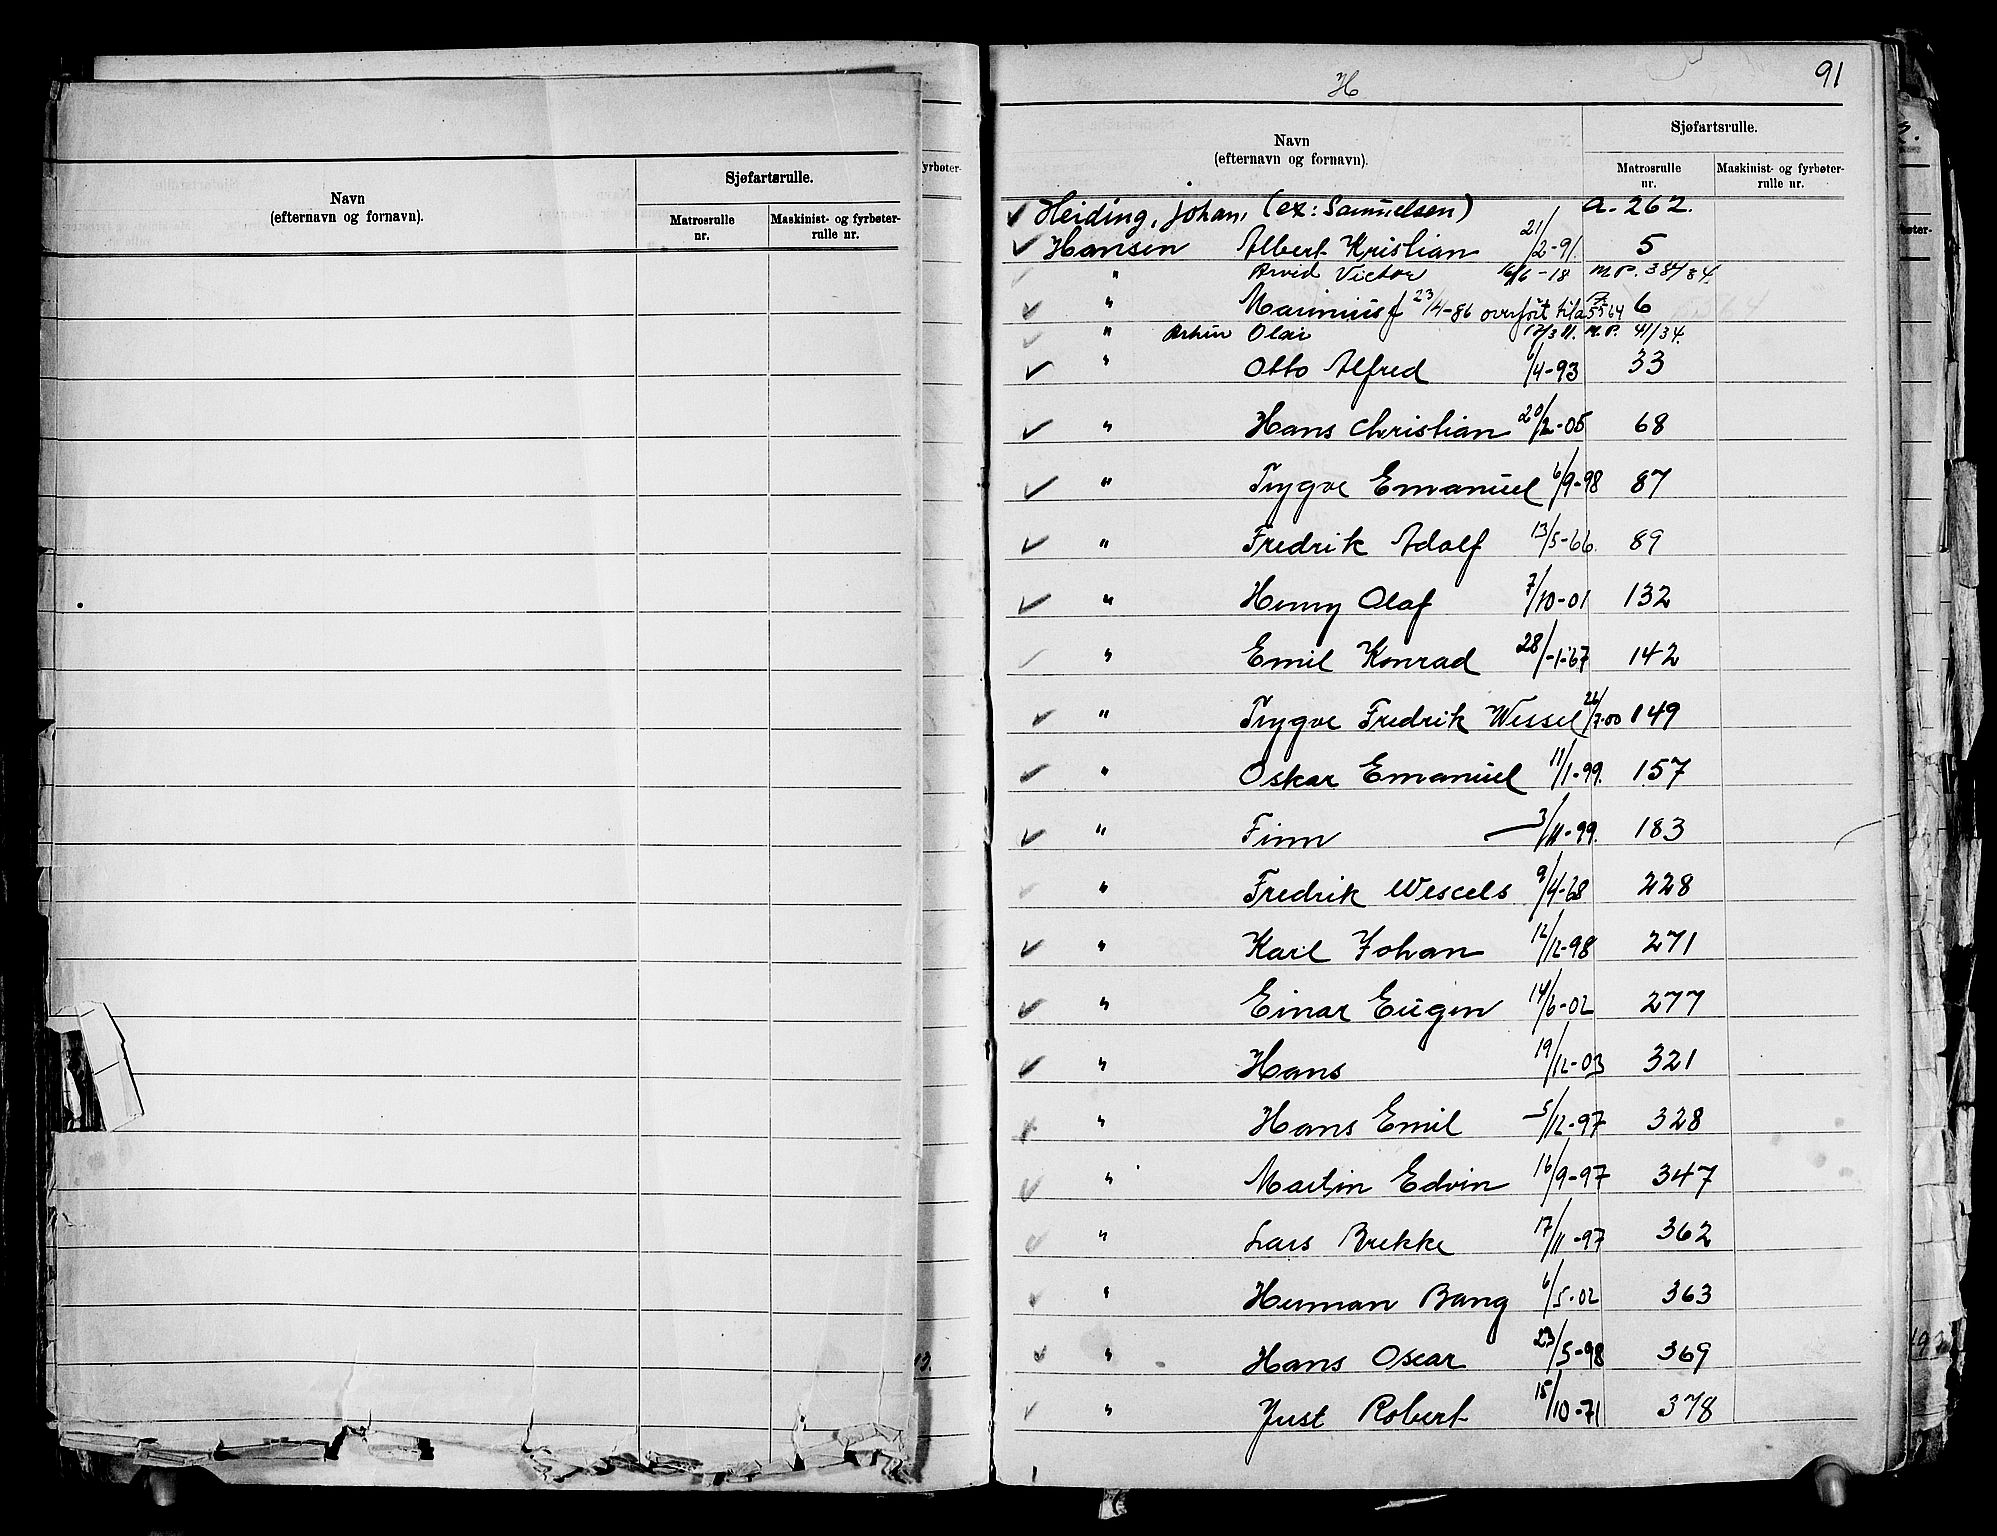 Navn
(efternavn og fornavn).
Sjøfartsrulle.
Matrosrulle nr.
Maskinist- og fyrbøter-rulle nr.
yrbøter-
H
91
Navn
(efternavn og fornavn).
Sjøfartsrulle.
Matrosrulle nr.
Maskinist- og fyrbøter-rulle nr.
✓ Heiding, Johan, (ex: Samuelsen) a. 262.
✓ Hansen Albert Kristian 21/2-91 5
✓ " Arvid Victor 16/6-18 M.P. 384/34.
✓ " Marinius 23/4-86 overført til a 5564 6
✓ " Arthur Olai 12/3 11. M.P. 41/34.
✓ " Otto Alfred 6/4-93 33
✓ " Hans Christian 20/2-05 68
✓ " Trygve Emanuel 6/9-98 87
✓ " Fredrik Adolf 13/5-66. 89
✓ " Henry Olaf 7/10-01 132
✓ " Emil Konrad 28/-1-67 142
✓ " Trygve Fredrik Wessel /7-00 149
✓ " Oskar Emanuel 11/1-99. 157
✓ " Finn 3/11-99. 183
✓ " Fredrik Wescels 9/4-68 228
✓ " Karl Johan 12/12-98 271
✓ " Einar Eugen 14/6-02 277
✓ " Hans 19/12-03 321
✓ " Hans Emil 5/12-97 328
✓ " Martin Edvin 16/9-97 347
✓ " Lars Brekke 17/11-97 362
✓ " Herman Bang 6/5-02 363
✓ " Hans Oscar 23/5-98 369
✓ " Just Robert 15/10-71 378